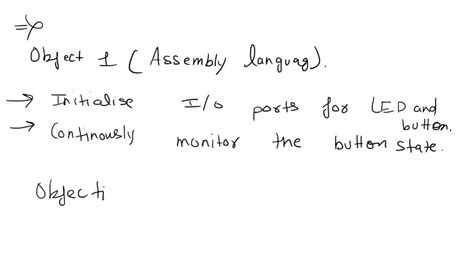 ⇒
Object 1 (Assembly languag).
→ Initialise I/o ports for LED and button.
→ Continously monitor the button state.
Objecti